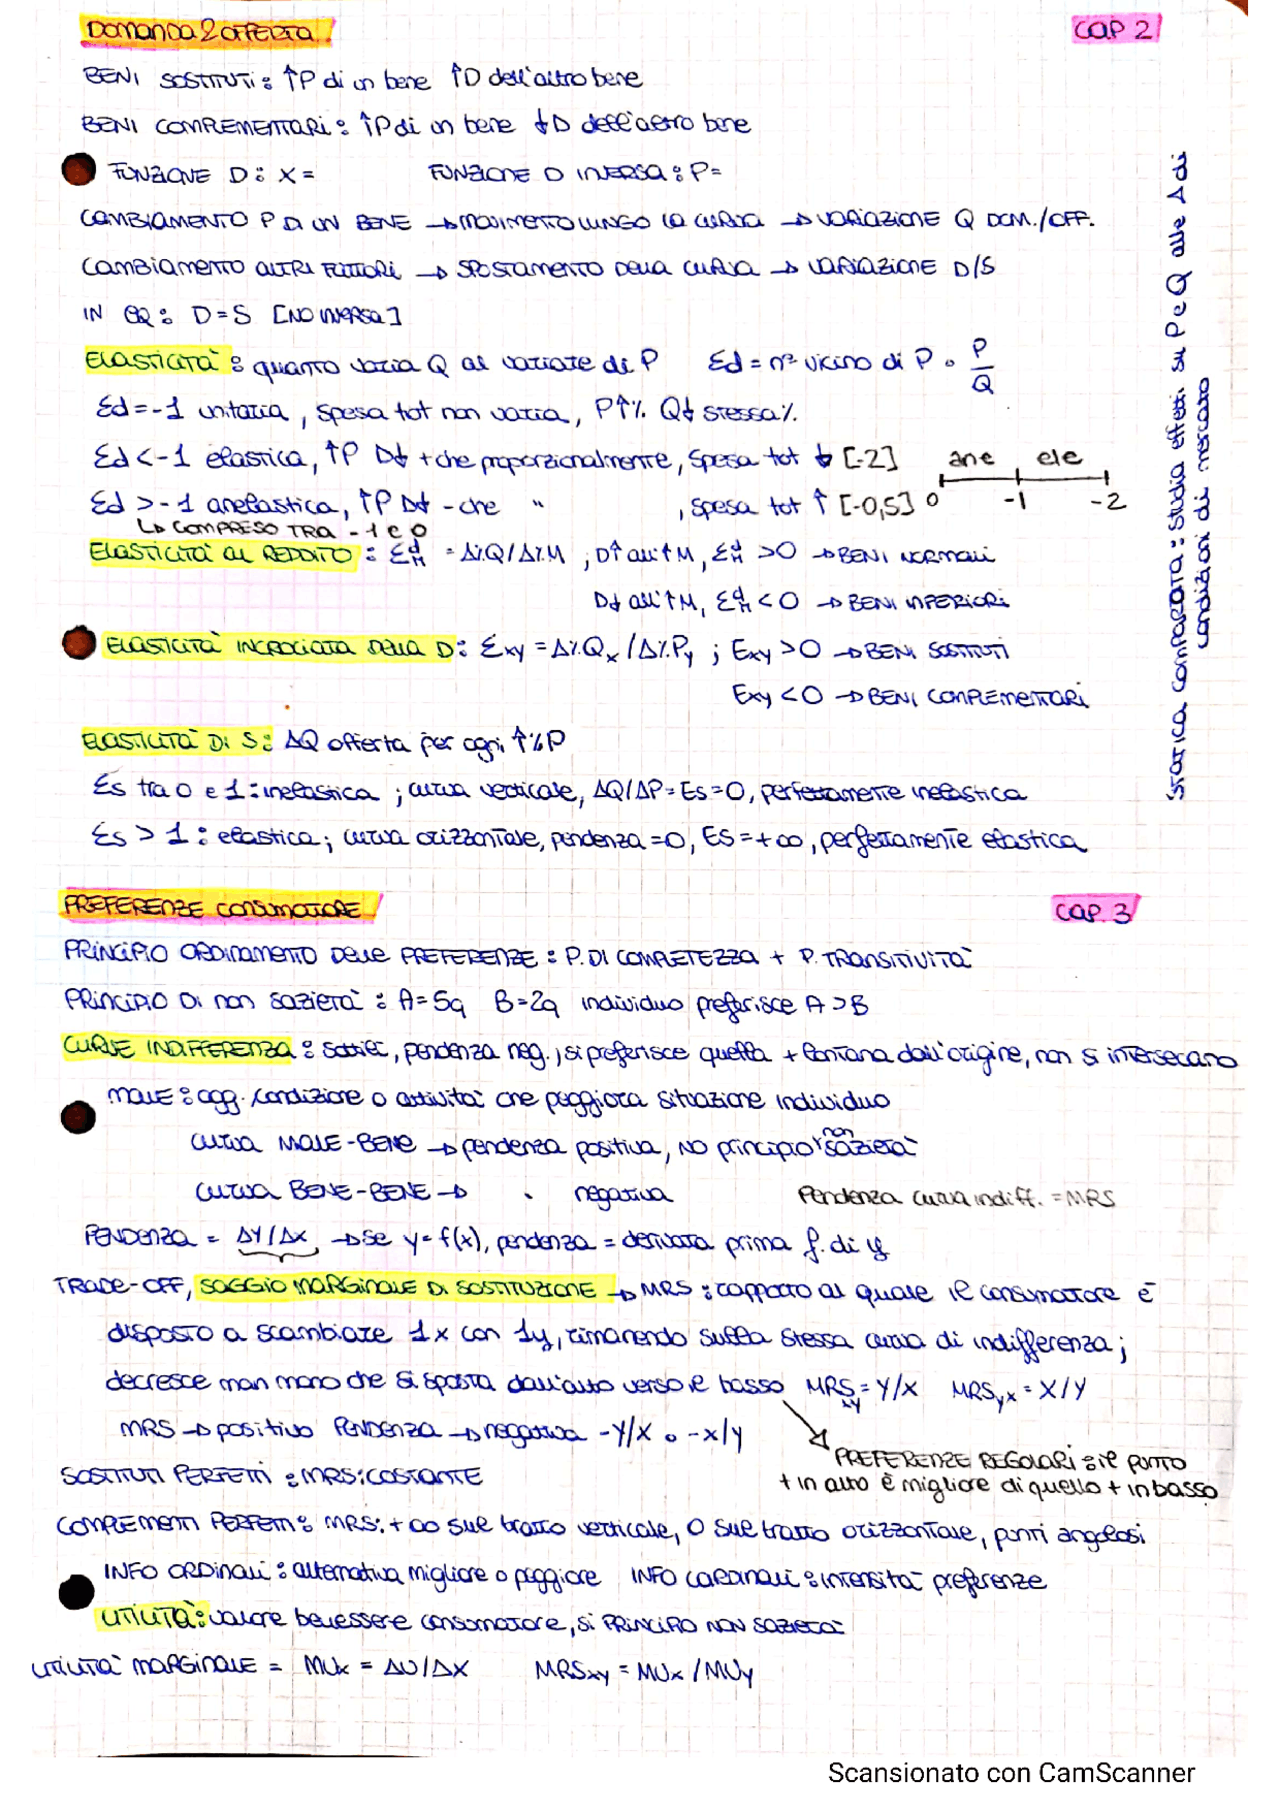 DOMANDA & OFFERTA CAP 2
BENI SOSTITUTI: ↑P di un bene ↑D dell'altro bene
BENI COMPLEMENTARI: ↑P di un bene ↓D dell'altro bene
FUNZIONE D: X = FUNZIONE D INVERSA: P=
CAMBIAMENTO P DI UN BENE → MOVIMENTO LUNGO LA CURVA → VARIAZIONE Q DOM./OFF.
CAMBIAMENTO ALTRI FATTORI → SPOSTAMENTO DELLA CURVA → VARIAZIONE D/S
IN EQ: D=S [NO INVERSA]
ELASTICITÀ: quanto varia Q al variare di P Ed = n° vicino di P · P/Q
Ed=-1 unitaria, spesa tot non varia, P↑% Q↓ stessa%
Ed<-1 elastica, ↑P D↓ + che proporzionalmente, spesa tot ↓ [-2] ane ele
Ed >-1 anelastica, ↑P D↓ - che " , spesa tot ↑ [-0,5] 0 -1 -2
↳ COMPRESO TRA -1 e 0
ELASTICITÀ AL REDDITO: Edm = Δ%Q/Δ%M ; D↑ all'↑M, Edm >0 → BENI NORMALI
D↓ all'↑M, Edm <0 → BENI INFERIORI
ELASTICITÀ INCROCIATA DELLA D: Exy = Δ%Qx/Δ%Py ; Exy >0 → BENI SOSTITUTI
Exy <0 → BENI COMPLEMENTARI
ELASTICITÀ DI S: ΔQ offerta per ogni ↑%P
Es tra 0 e 1: inelastica ; curva verticale, ΔQ/ΔP=Es=0, perfettamente inelastica
Es > 1: elastica; curva orizzontale, pendenza =0, ES=+∞, perfettamente elastica
STATICA COMPARATA: studia effetti su P e Q alle Δ di
condizioni di mercato
PREFERENZE CONSUMATORE CAP. 3
PRINCIPIO ORDINAMENTO DELLE PREFERENZE: P. DI COMPLETEZZA + P. TRANSITIVITÀ
PRINCIPIO DI non SAZIETÀ: A=5q B=2q individuo preferisce A>B
CURVE INDIFFERENZA: sottili, pendenza neg., si preferisce quella + lontana dall'origine, non si intersecano
MALE: ogg. condizione o attività che peggiora situazione individuo
CURVA MALE-BENE → pendenza positiva, NO principio non sazietà
CURVA BENE-BENE → " negativa Pendenza curva indiff. = MRS
PENDENZA = ΔY/ΔX → se y=f(x), pendenza = derivata prima f. di y
TRADE-OFF, SAGGIO MARGINALE DI SOSTITUZIONE → MRS: rapporto al quale il consumatore è
disposto a scambiare 1x con 1y, rimanendo sulla stessa curva di indifferenza;
decresce man mano che si sposta dall'alto verso il basso MRSxy = Y/X MRSyx = X/Y
MRS → positivo PENDENZA → negativa -Y/X o -X/Y
PREFERENZE REGOLARI: il punto
+ in alto è migliore di quello + in basso
SOSTITUTI PERFETTI: MRS: COSTANTE
COMPLEMENTI PERFETTI: MRS: +∞ sul tratto verticale, 0 sul tratto orizzontale, punti angolosi
INFO ORDINALI: alternativa migliore o peggiore INFO CARDINALI: intensità preferenze
UTILITÀ: valore benessere consumatore, si PRINCIPIO NON SAZIETÀ
UTILITÀ MARGINALE = MUx = ΔU/ΔX MRSxy = MUx/MUy
Scansionato con CamScanner